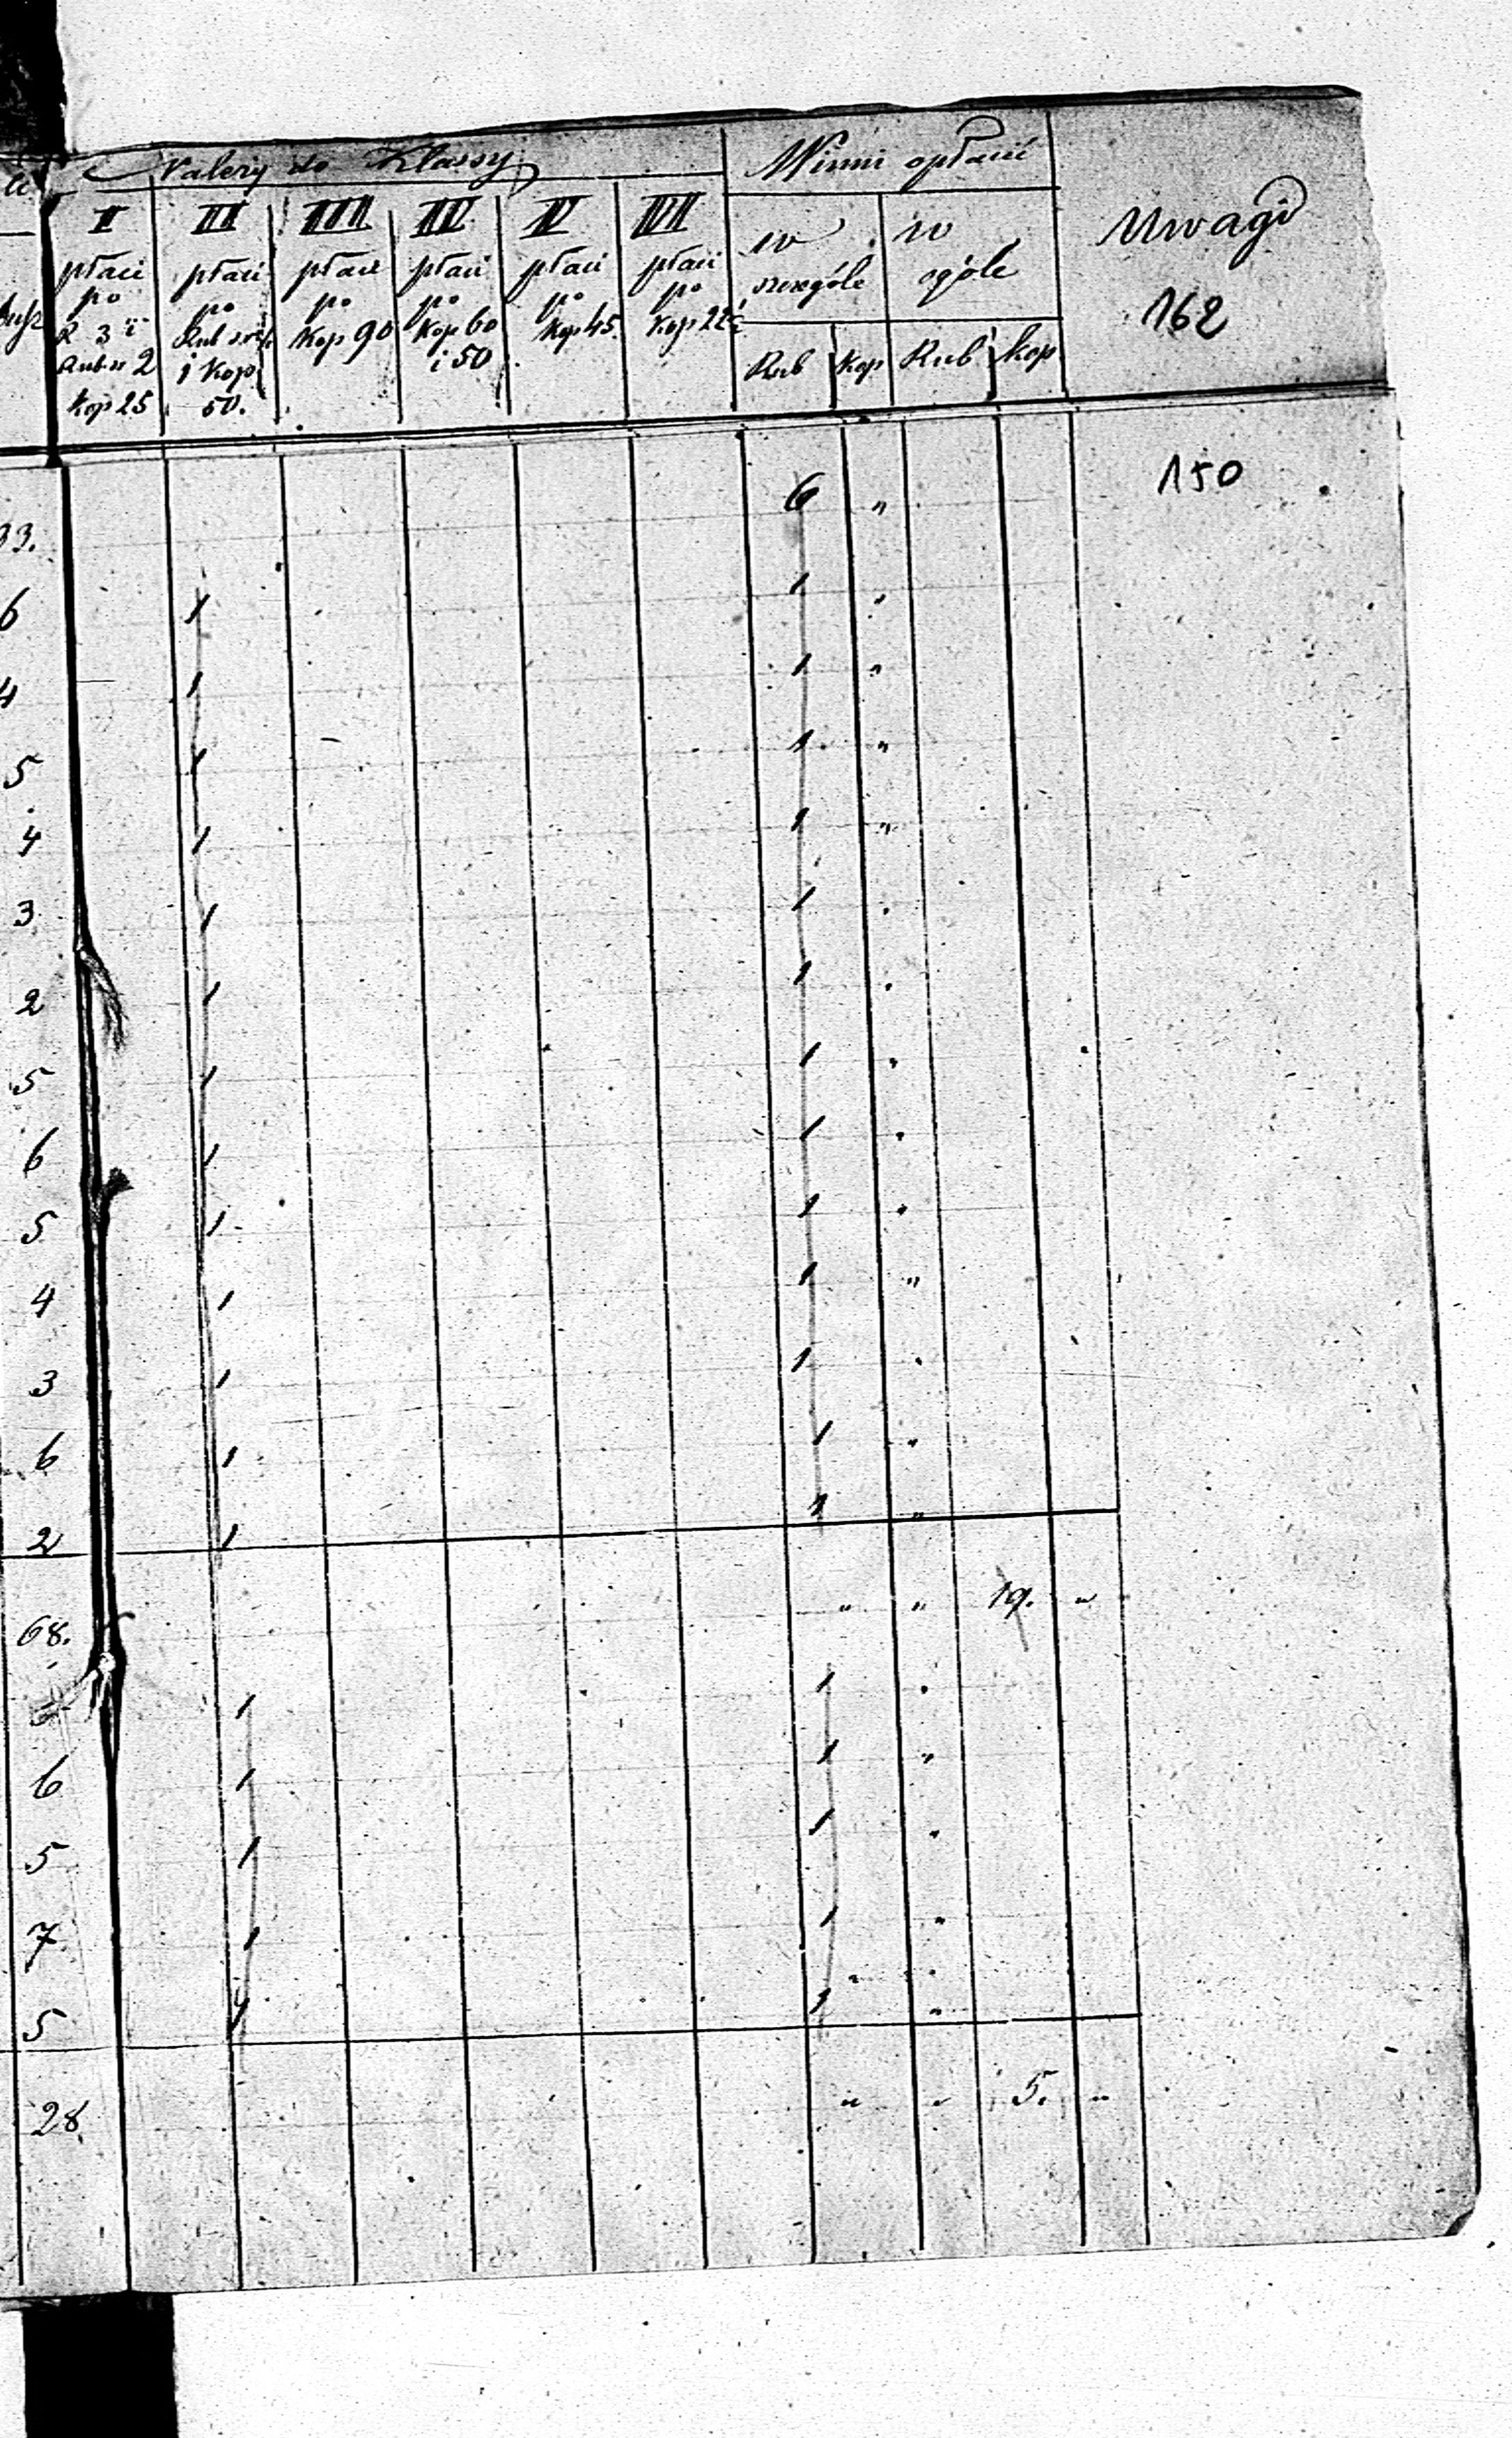 Należy do Klassy
Winni opłacić
Uwagi
I II III IV V VI
w szczególe
w ogóle
płaci po R 3 i Rub sr 2 Kop 25
płaci po Rub sr i Kop 50.
płaci po Kop 90
płaci po Kop 60 i 50
płaci po Kop 45
płaci po Kop 22½
Rub Kop Rub kop
162
150
93. 6 "
6 1 1 "
4 1 1 "
5 1 1 "
4 1 1 "
3 1 1 "
2 1 1 "
5 1 1 "
6 1 1 "
5 1 1 "
4 1 1 "
3 1 1 "
6 1 1 "
2 1 1 "
68. " " 19. "
1 1 "
6 1 1 "
5 1 1 "
7 1 1 "
5 1 1 "
28 " " 5. "